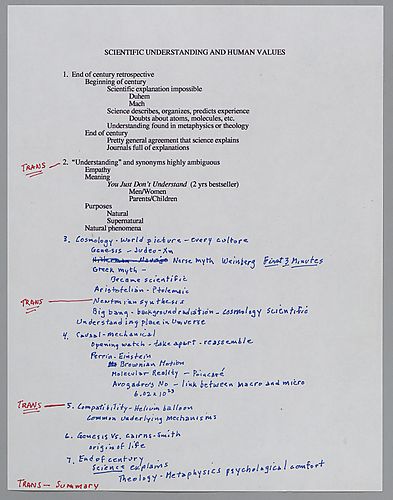 SCIENTIFIC UNDERSTANDING AND HUMAN VALUES
1. End of century retrospective
Beginning of century
Scientific explanation impossible
Duhem
Mach
Science describes, organizes, predicts experience
Doubts about atoms, molecules, etc.
Understanding found in metaphysics or theology
End of century
Pretty general agreement that science explains
Journals full of explanations
TRANS
2. "Understanding" and synonyms highly ambiguous
Empathy
Meaning
You Just Don't Understand (2 yrs bestseller)
Men/Women
Parents/Children
Purposes
Natural
Supernatural
Natural phenomena
3. Cosmology - World picture - every culture
Genesis - Judeo-Xn
Norse myth Weinberg First 3 Minutes
Greek myth -
Became scientific
Aristotelian - Ptolemaic
TRANS
Newtonian synthesis
Big bang - background radiation - cosmology scientific
Understanding place in Universe
4. Causal-mechanical
Opening watch - take apart - reassemble
Perrin - Einstein
Brownian Motion
Molecular Reality - Poincaré
Avogadro's No - link between macro and micro
6.02 x 10²³
TRANS
5. Compatibility - Helium balloon
Common underlying mechanisms
6. Genesis vs. Cairns-Smith
origin of life
7. End of century
Science explains
Theology - Metaphysics psychological comfort
TRANS - Summary